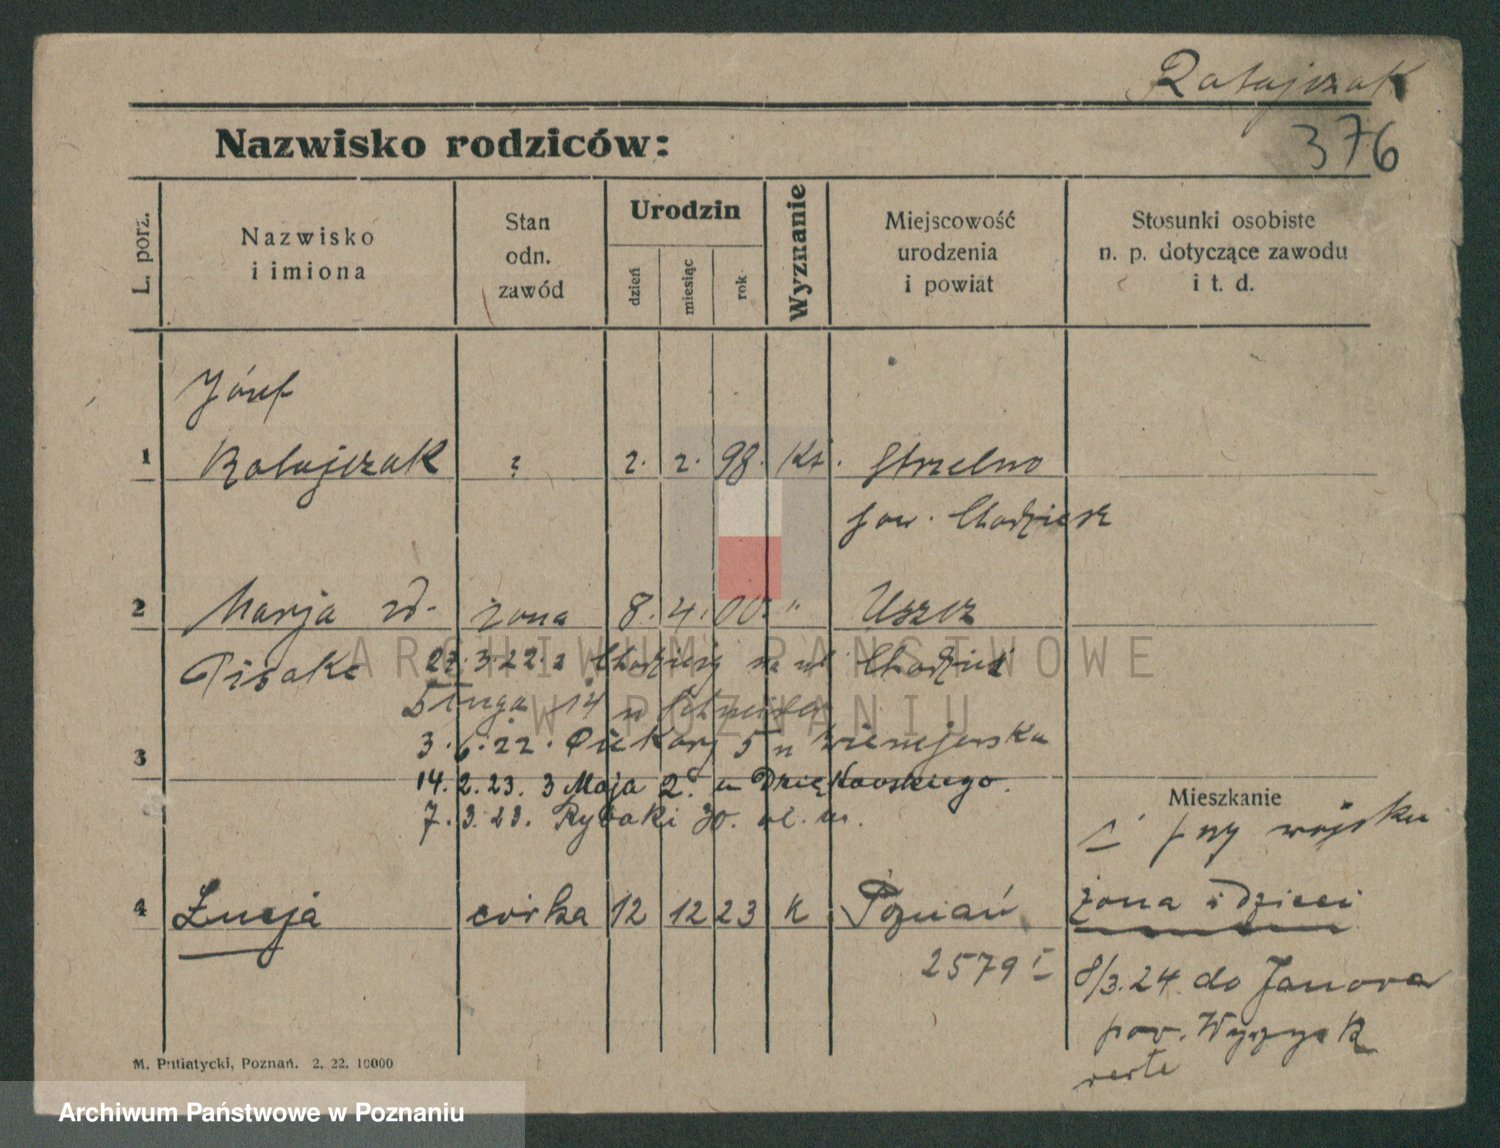 Ratajczak
376
Nazwisko rodziców:
L. porz.
Nazwisko
i imiona
Stan
odn.
zawód
Urodzin
dzień
miesiąc
rok
Wyznanie
Miejscowość
urodzenia
i powiat
Stosunki osobiste
n. p. dotyczące zawodu
i t. d.
Józef
1 Ratajczak ? 2. 2. 98. Kt. Strzelno
pow. Chodzież
2 Marja zd. żona 8. 4. 00. " Uszcz
Pisake Chodzież
27.3.22. z Chodzieży na ul
Długa 14 u
3
3.6.22. Piekary 5 u
14.2.23. 3 Maja 2. u Dziękowskiego.
7.3.23. Rybaki 30. ul. m.
Mieszkanie
1 przy wojsku
4 Łucja córka 12 12 23 K Poznań
żona i dzieci
2579 I
8/3.24 do Janowa
pow. Wyrzysk
M. Putiatycki, Poznań. 2. 22. 10000
ARCHIWUM PAŃSTWOWE
W POZNANIU
Archiwum Państwowe w Poznaniu